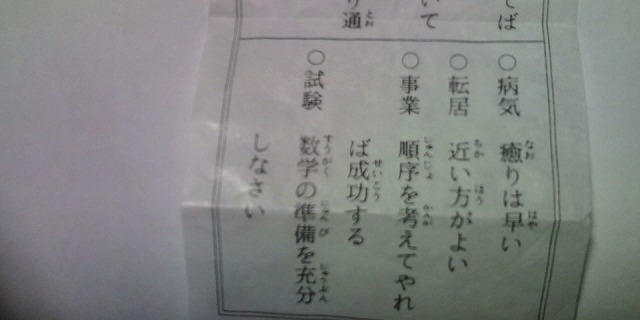 てば
いて
り通
○病気 癒りは早い
○転居 近い方がよい
○事業 順序を考えてやれ
ば成功する
○試験 数学の準備を充分
しなさい